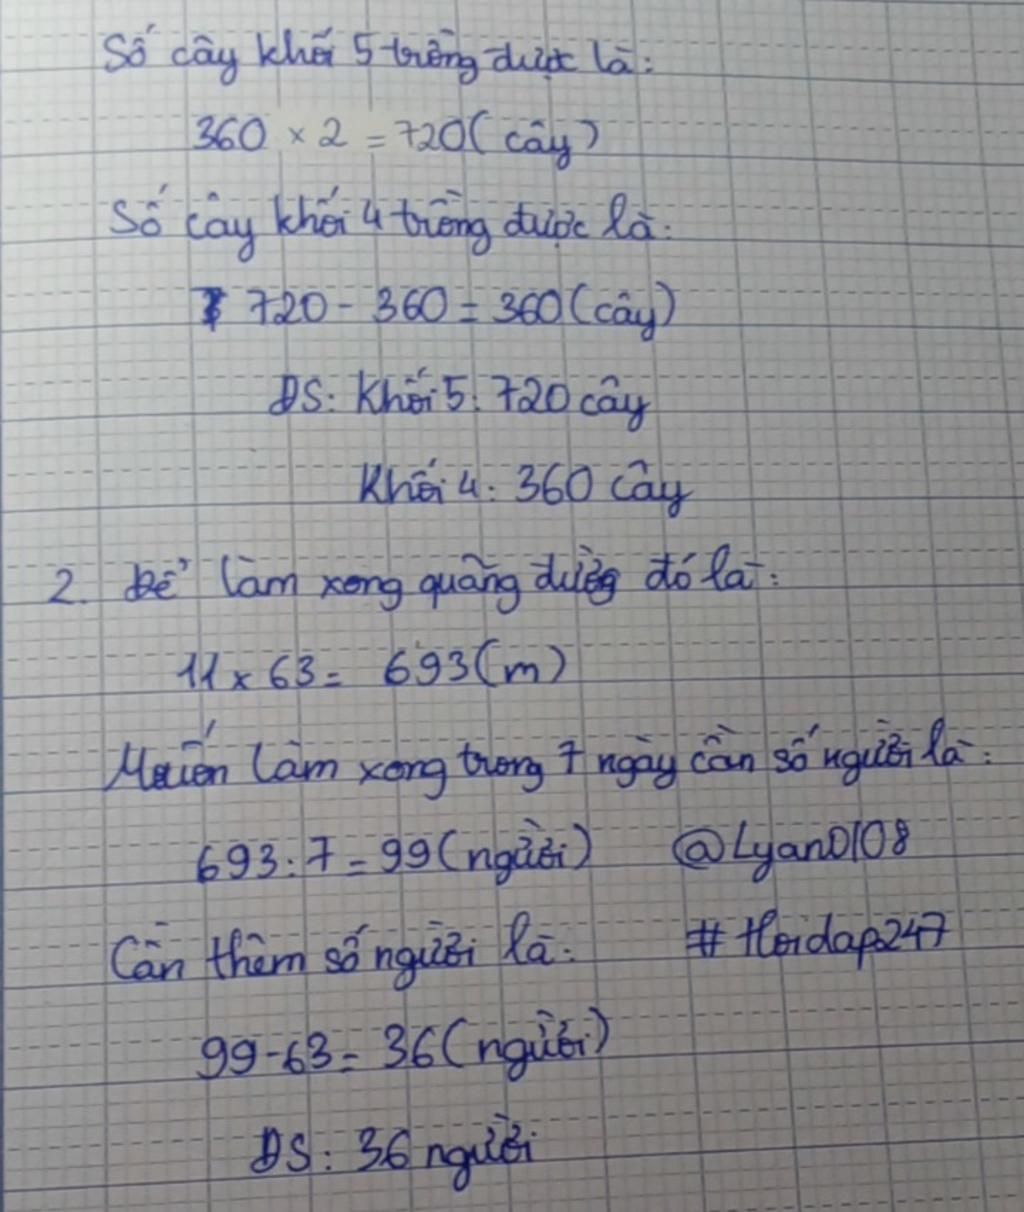 Số cây khối 5 trồng được là:
360 × 2 = 720 (cây)
Số cây khối 4 trồng được là:
720 - 360 = 360 (cây)
ĐS: Khối 5: 720 cây
Khối 4: 360 cây
2. Để làm xong quãng đường đó là:
11 × 63 = 693 (m)
Muốn làm xong trong 7 ngày cần số người là:
693 : 7 = 99 (người) @Lyan0108
Cần thêm số người là: # Hoidap247
99 - 63 = 36 (người)
ĐS: 36 người